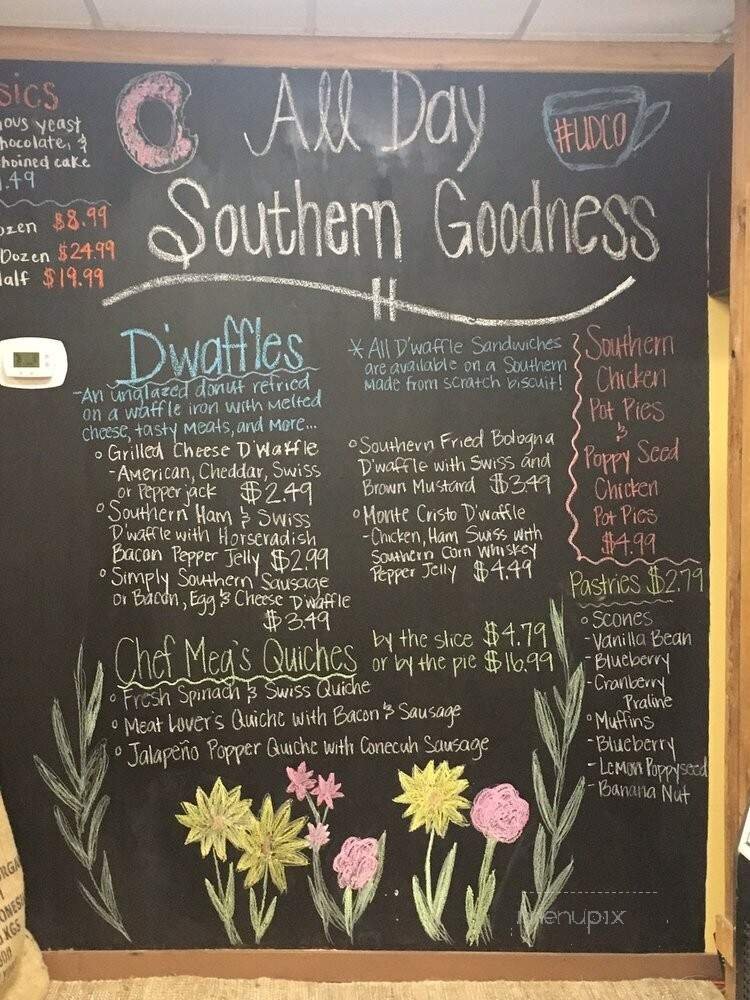 All Day
#UDCO
Southern Goodness
yeast
cake
.49
$8.99
Dozen $24.99
$19.99
D'waffles
-An unglazed donut refried
on a waffle iron with melted
cheese, tasty meats, and more...
* All D'waffle Sandwiches
are available on a Southern
Made from scratch biscuit!
Grilled Cheese D'Waffle
-American, Cheddar, Swiss
or Pepperjack $2.49
Southern Ham & Swiss
D'waffle with Horseradish
Bacon Pepper Jelly $2.99
Simply Southern Sausage
or Bacon, Egg & Cheese D'waffle
$3.49
Southern Fried Bologna
D'waffle with Swiss and
Brown Mustard $3.49
Monte Cristo D'waffle
-Chicken, Ham Swiss with
Southern Corn Whiskey
Pepper Jelly $4.49
Southern
Chicken
Pot Pies
&
Poppy Seed
Chicken
Pot Pies
$4.99
Pastries $2.79
Scones
-Vanilla Bean
-Blueberry
-Cranberry
Praline
Muffins
-Blueberry
-Lemon Poppyseed
-Banana Nut
Chef Meg's Quiches
by the slice $4.79
or by the pie $16.99
Fresh Spinach & Swiss Quiche
Meat Lover's Quiche with Bacon & Sausage
Jalapeño Popper Quiche with Conecuh Sausage
menupix